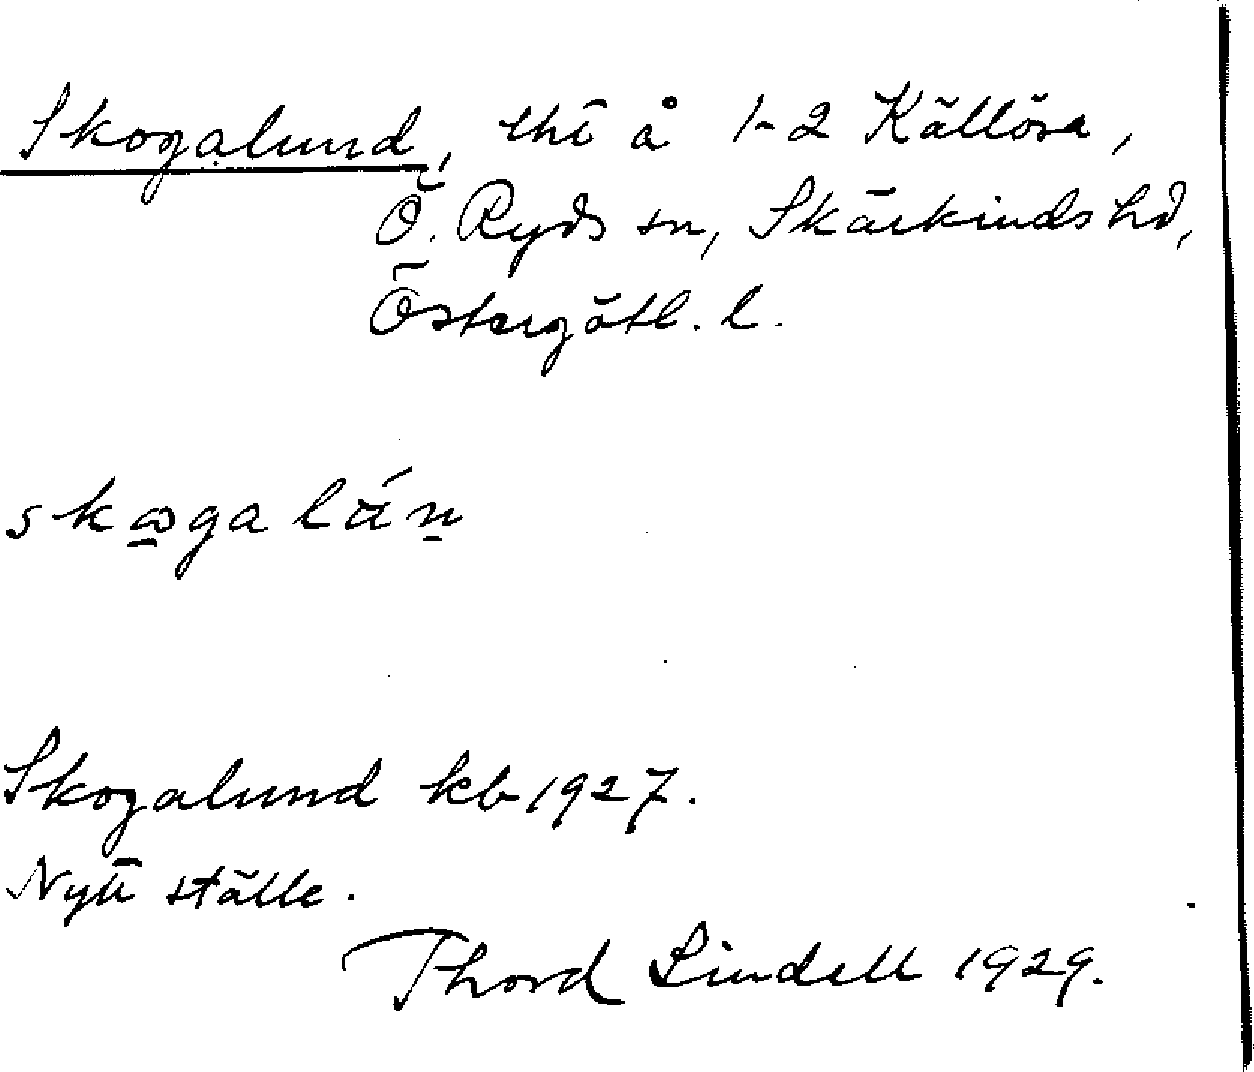 Skogalund, tht å 1-2 Källösa,
Ö. Ryds sn, Skärkinds hd,
Östergötl. l.
skꞷga lún
Skogalund kb 1927.
Nytt ställe.
Thord Lindell 1929.